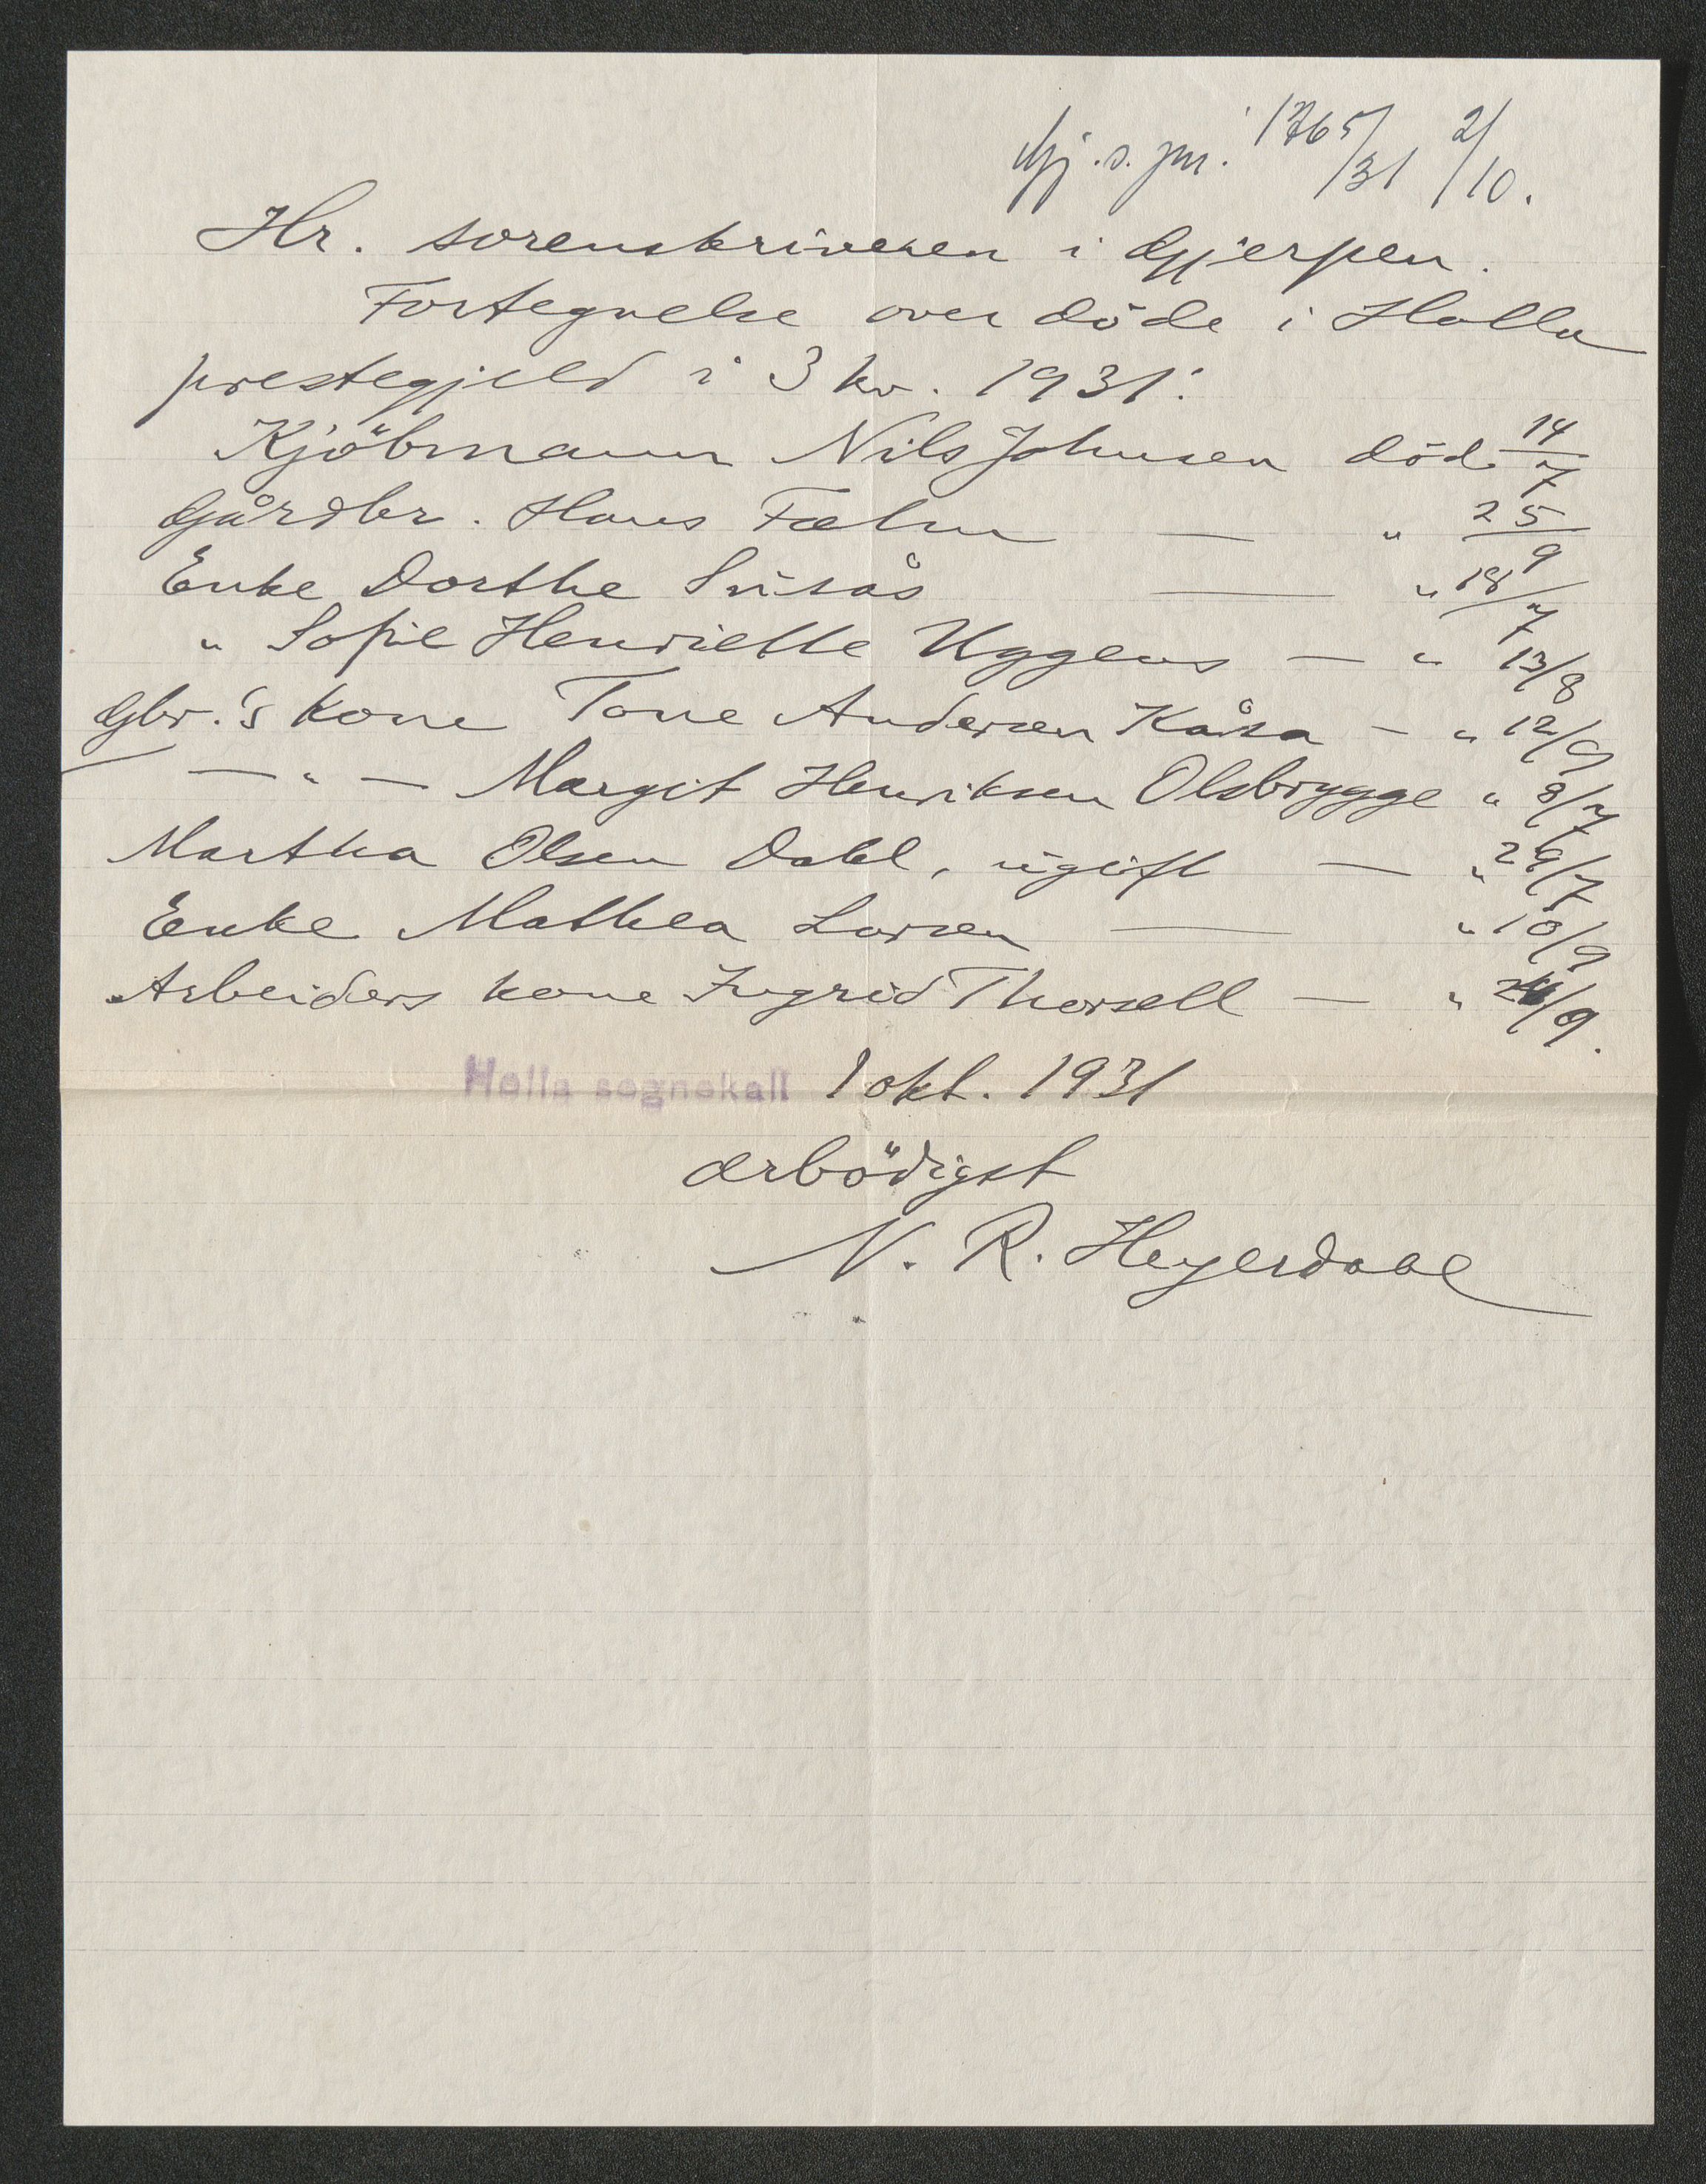 Gj. s. jnr. 1765/31 2/10.
Hr. sorenskriveren i Gjerpen.
Fortegnelse over döde i Holla
prestegjeld i 3 kv. 1931:
Kjöbmann Nils Johnsen död 14/7
Gårdbr. Hans Fæhn — " 25/9
Enke Dorthe — " 18/7
" Sofie Henriette Uggens — " 13/8
Gbr.'s kone Tone Andersen Kåsa — " 12/9
— " — Margit Henriksen Olsbrygge " 8/7
Martha Olsen Dahl, ugift — " 29/7
Enke Mathea Larsen — " 10/9
Arbeiders kone Ingrid Thorsell — " /9.
Holla sognekall 1 okt. 1931
ærbödigst
N. R. Heyerdahl